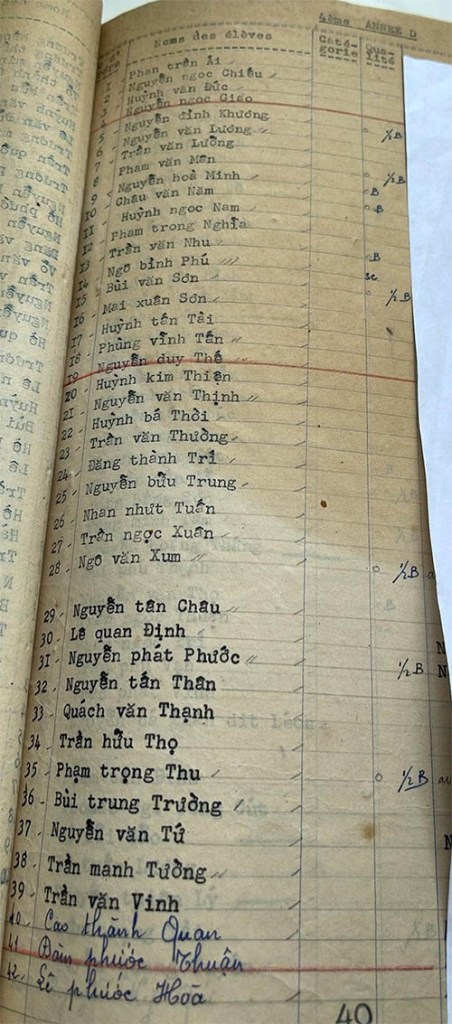 4ème ANNEE D
Noms des élèves Caté- gorie Qua- lité
1 - Phan trần Ái
2 - Nguyễn ngọc Chiếu
3 - Huỳnh văn Đức
Nguyễn ngọc Giáo
5 - Nguyễn đình Khương
6 - Nguyễn văn Lương ½B
7 - Trần văn Lường
8 - Phạm văn Mẫn
9 - Nguyễn hoà Minh ½B
10 - Châu văn Năm B
11 - Huỳnh ngọc Nam B
12 - Phạm trong Nghĩa
13 - Trần văn Nhu
14 - Ngô bình Phú B
15 - Bùi văn Sơn sc
16 - Mai xuân Sơn ½B
17 - Huỳnh tấn Tài
18 - Phùng vĩnh Tấn
19 Nguyễn duy Thế
20 - Huỳnh kim Thiện
21 - Nguyễn văn Thịnh
22 - Huỳnh bá Thời
23 - Trần văn Thường
24 - Đăng thành Trí
25 - Nguyễn bửu Trung
26 - Nhan nhựt Tuấn
27 - Trần ngọc Xuân
28 - Ngô văn Xum ½B
29 - Nguyễn tân Châu
30 - Lê quan Định
31 - Nguyễn phát Phước ½B
32 - Nguyễn tấn Thân
33 - Quách văn Thạnh
34 - Trần hữu Thọ
35 - Phạm trọng Thu ½B
36 - Bùi trung Trường
37 - Nguyễn văn Tứ
38 - Trần mạnh Tường
39 - Trần văn Vinh
40 - Cao thành Quan
41 - Đàm phước Thuận
42 - Lê phước Hòa
40